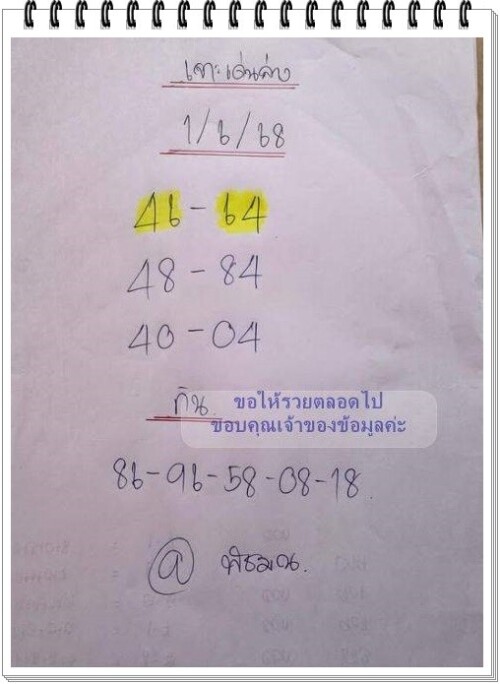 เจาะเด่นล่าง
1/6/68
46 - 64
48 - 84
40 - 04
กัน
ขอให้รวยตลอดไป
ขอบคุณเจ้าของข้อมูลค่ะ
86 - 96 - 58 - 08 - 18
@ พิรมณ.